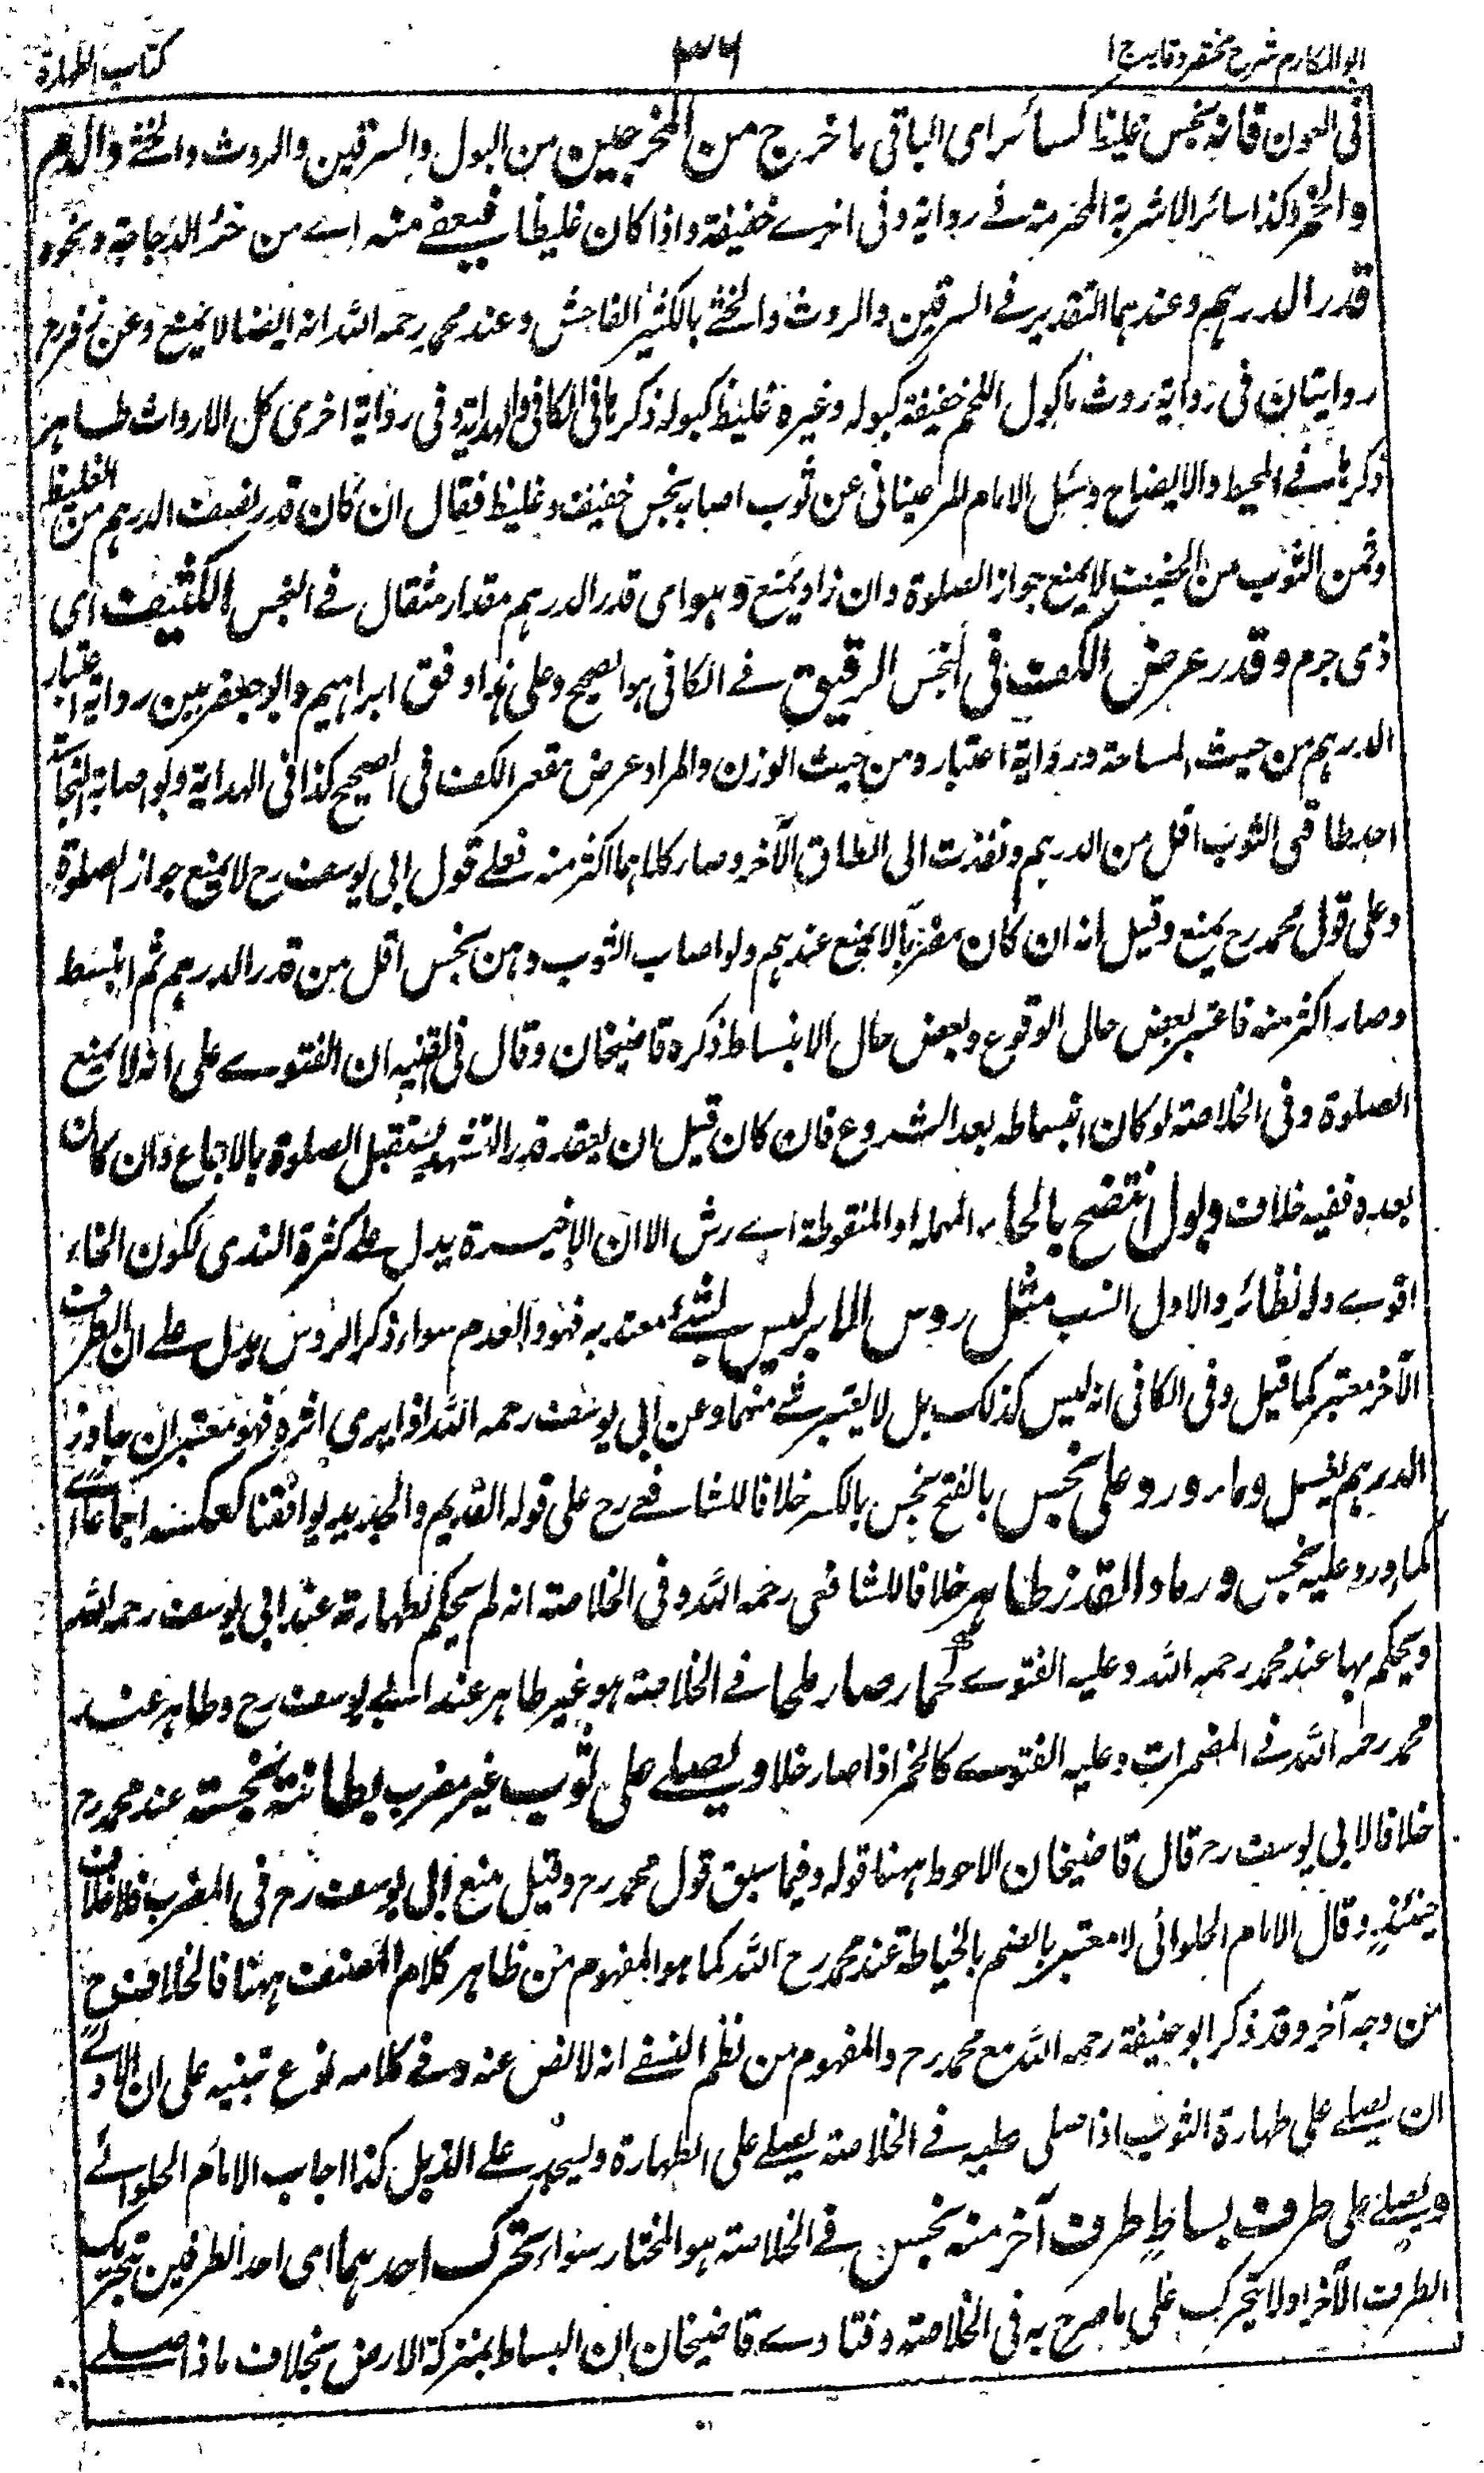 ابو المکارم شرح مختصر وقایه ج ا
۳۶
کتاب الطهارة
فی العون فانه نجس غلیظا کسائر ای الباقی ما خرج من المخرجین من البول والسرقین والروث والخثے والدم
والخمر وکذا سائر الاشربة المحرمة فے روایة وفی اخرے خفیفة واذا کان غلیظا فیعفے منه اے من خرء الدجاجة ونحوه
قدر الدرهم وعندهما التقدیر فے السرقین والروث والخثے بالکثیر الفاحش وعند محمد رحمه الله انه ایضا لا یمنع وعن زفر رح
روایتان فی روایة روث ماکول اللحم خفیفة کبوله وغیره غلیظ کبوله ذکرها فی الکافی والهدایة وفی روایة اخری کل الارواث طاهر
ذکرها فے المحیط والایضاح وسئل الامام المرغینانی عن ثوب اصابه نجس خفیف وغلیظ فقال ان کان قدر نصف الدرهم من الغلیظ
وثمن الثوب من الخفیف لا یمنع جواز الصلوة وان زاد یمنع وهو ای قدر الدرهم مقدار مثقال فے النجس الکثیف ای
ذی جرم وقدر عرض الکف فی النجس الرقیق فے الکافی هو الصحیح وعلی هذا وفق ابراهیم وابو جعفر بین روایة اعتبار
الدرهم من حیث المساحة وروایة اعتباره من حیث الوزن والمراد عرض مقعر الکف فی الصحیح کذا فی الهدایة ولو اصابة النجاسة
احد طاقی الثوب اقل من الدرهم ونفذت الی الطاق الآخر وصار کلاهما اکثر منه فعلے قول ابی یوسف رح لا یمنع جواز الصلوة
وعلی قول محمد رح یمنع وقیل انه ان کان مضربا لا یمنع عندهم ولو اصاب الثوب دهن نجس اقل من قدر الدرهم ثم انبسط
وصار اکثر منه فاعتبر بعض حال الوقوع وبعض حال الانبساط ذکره قاضیخان وقال فی القنیه ان الفتوے علی انه لا یمنع
الصلوة وفی الخلاصة لو کان انبساطه بعد الشروع فان کان قبل ان یقعد قدر التشهد یستقبل الصلوة بالاجماع وان کان
بعده ففیه خلاف وبول انتضح بالحاء المهملة او المنقوطة اے رش الا ان الاخیرة یدل علے کثرة الندی لکون الخاء
اقوے وله نظائر والاول انسب مثل روس الابر لیس بشئے معتد به فهو والعدم سواء ذکر الروس یدل علے ان الطرف
الآخر معتبر کما قیل وفی الکافی انه لیس کذلک بل لا یعتبر شئ منهما وعن ابی یوسف رحمه الله اذا یری اثره فهو معتبر ان جاوز
الدرهم یغسل وماء ورد علی نجس بالفتح نجس بالکسر خلافا للشافعے رح علی قوله القدیم والجدید یوافقنا کعکسه اجماعا اے
کماء ورد علیه نجس ورماد القذر طاهر خلافا للشافعی رحمه الله وفی الخلاصة انه لم یحکم بطهارته عند ابی یوسف رحمه الله
ویحکم بها عند محمد رحمه الله وعلیه الفتوے کحمار صار ملحا فے الخلاصة هو غیر طاهر عند ابے یوسف رح وطاهر عند
محمد رحمه الله فے المضمرات وعلیه الفتوے کالخمر اذا صار خلا ویصلے علی ثوب غیر مضرب بطانته نجسة عند محمد رح
خلافا لابی یوسف رح قال قاضیخان الاحوط ههنا قوله وفیما سبق قول محمد رح وقیل منع ابی یوسف رح فی المضرب فلا خلاف
حینئذ وقال الامام الحلوائی لا معتبر بالضم بالخیاطة عند محمد رح الله کما هو المفهوم من ظاهر کلام المصنف ههنا فالخلاف ح
من وجه آخر وقد ذکر ابو حنیفة رحمه الله مع محمد رح والمفهوم من نظم النسفے انه لا نص عنه وفے کلامه نوع تنبیه علی ان الاولے
ان یصلے علی طهارة الثوب اذا صلی علیه فے الخلاصة یصلے علی الطهارة ولیجد علے الذیل کذا اجاب الامام الحلوائے
ویصلے علی طرف بساط طرف آخر منه نجس فے الخلاصة هو المختار سواء تحرک احدهما ای احد الطرفین بتحریک
الطرف الآخر او لا یتحرک علی ما صرح به فی الخلاصة وفتاوے قاضیخان ان البساط بمنزلة الارض بخلاف ما اذا صلے